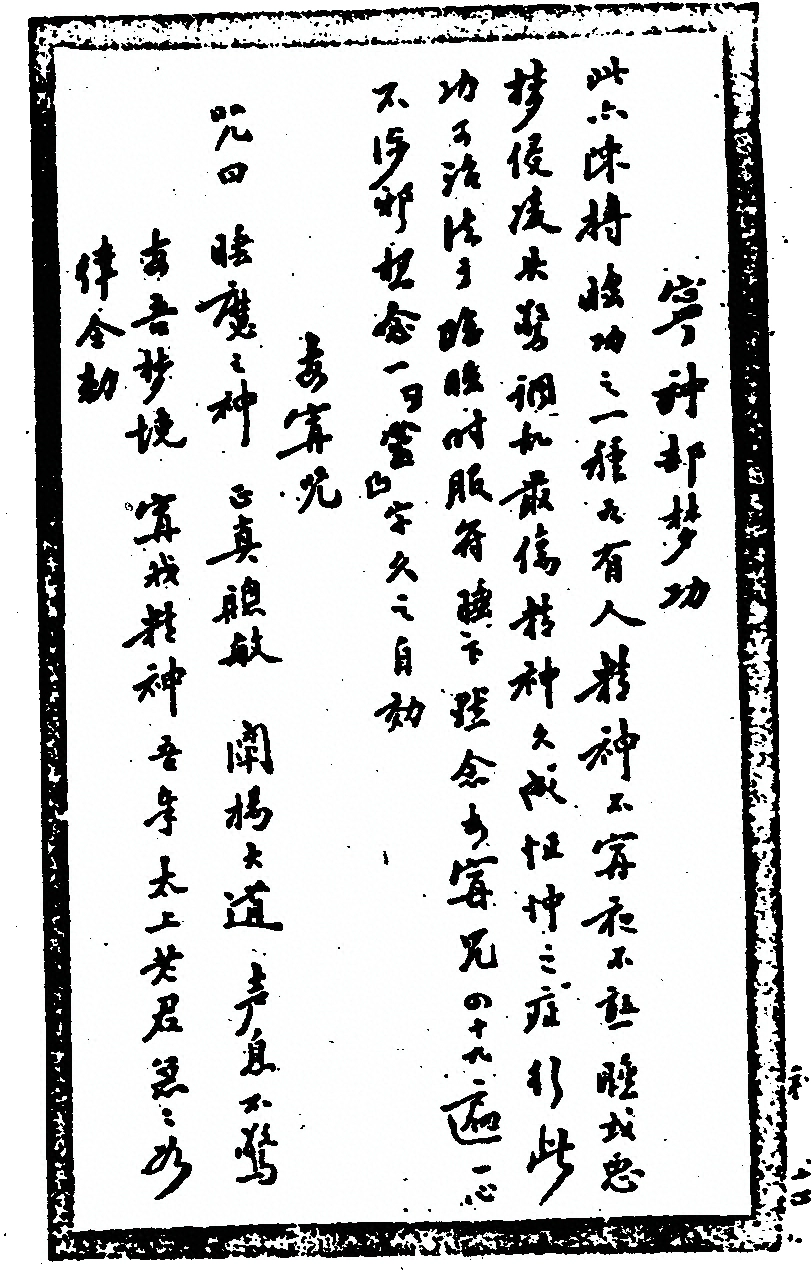 宁神却梦功
此亦陳摶睡功之一種如有人精神不寧夜不熟睡或恶
梦侵凌出驚調乩最傷精神久成怔忡之症行此
功可治法于臨睡时服符睡下默念安寧咒四十九遍一心
不涉邪想念一日營字久之自効
安寧咒
咒曰 睡魔之神 正真聰敏 闡揚大道 声息不驚
安吾梦境 寧我精神 吾奉太上老君急々如
律令勅